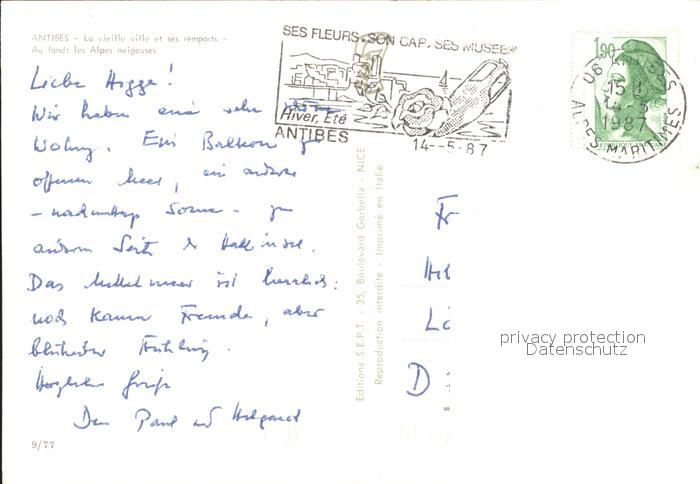 ANTIBES - La vieille ville et ses remparts -
Au fond: les Alpes neigeuses
SES FLEURS. SON CAP. SES MUSÉES
Hiver, Été
ANTIBES
14--5-87
1,90
06 ANTIBES
15 H
14-5
1987
ALPES MARITIMES
Liebe Hogge!
Wir haben eine sehr
Wohng. Ein Balkon zum
offenen Meer, ein anderer
- nachmittag Sonne - zur
anderen Seite der Halbinsel.
Das Mittelmeer ist herrlich:
noch kaum Fremde, aber
blühender Frühling.
Herzliche Grüße
Dein Paul und Helgard
9/77
Editions S.E.P.T. - 35, Boulevard Gorbella - NICE
Reproduction interdite - Imprimé en Italie
Fr
Hil
D
privacy protection
Datenschutz